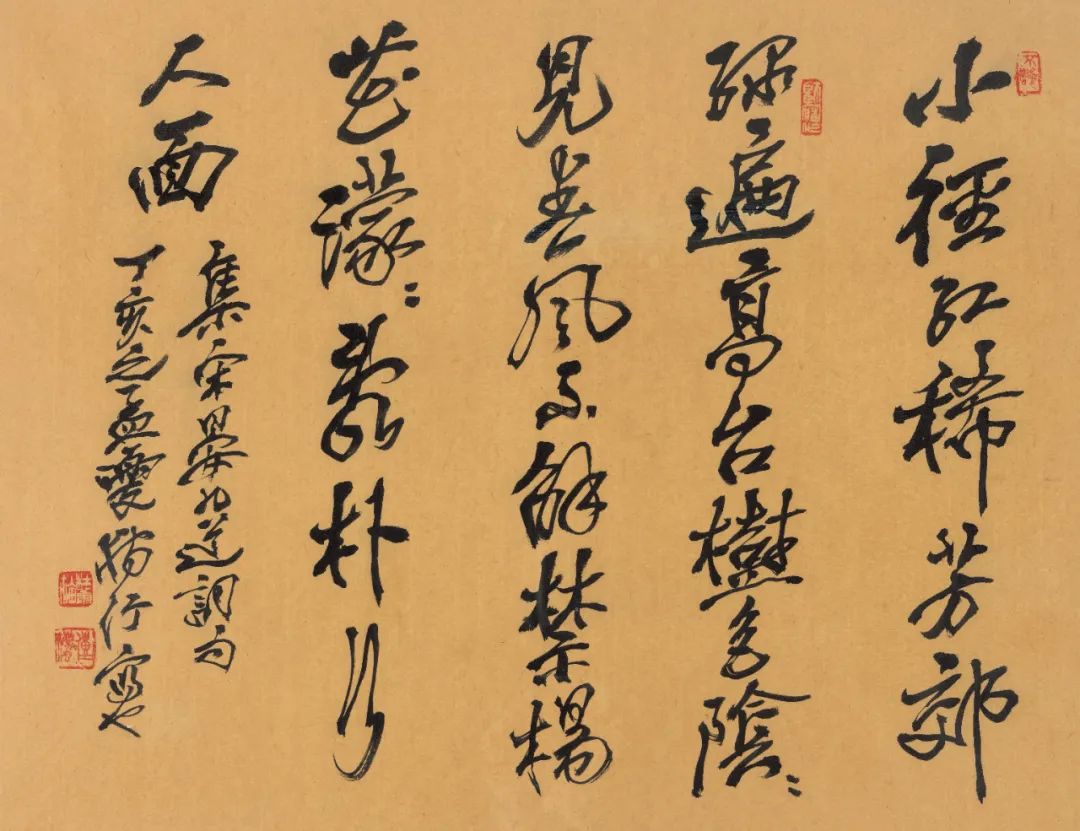 小徑紅稀芳郊
綠遍高台樹色陰々
見春風不解禁楊
花濛々亂朴行
人面
集宋晏几道詞句
丁亥之孟夏行寫也